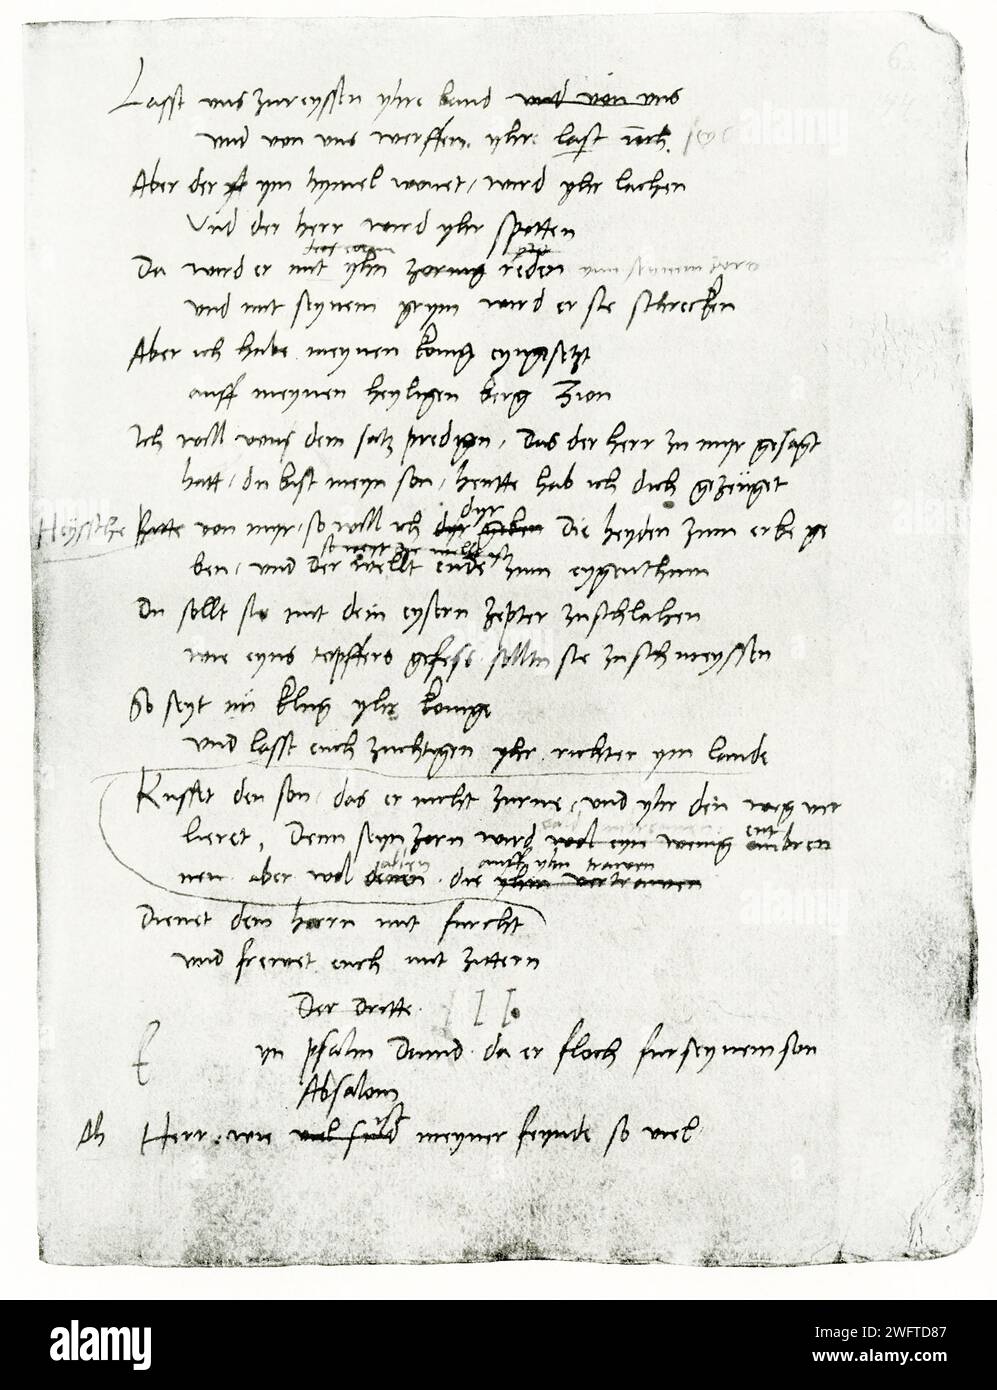 Lasst uns zureyssen yhre band und von uns
und von uns werffen yhr last
Aber der ym hymel wonet, wird yhr lachen
Und der herr wird yhr spotten
Da wird er mit yhn zornig reden ynn seynem zorn
und mit seynem grym wird er sie schrecken
Aber ich habe meynen konig eyngesetzt
auff meynen heyligen berg Zion
Ich will von dem satz predigen, Das der herr zu myr gesagt
hatt, du bist meyn son, heutte hab ich dich gezeuget
Heyssche Bitte von myr, so will ich dyr geben die heyden zum erbe ge
ben, und der wellt ende zum eygenthum
Du sollt sie mit dein eysern zepter zuschlahen
wie eyns topffers gefess solltu sie zuschmeyssen
So seyt nu klug yhr konige
und lasst euch zuchtigen yhr richter ym lande
Kusset den son, das er nicht zurne, und yhr den weg ver
lieret, Denn seyn zorn wird wol eyn wenig anbren
nen aber wol denen die yhm vertrawen
allen auff yhn trawen
Dienet dem herrn mit furcht
und frewet euch mit zittern
Der dritte III.
eyn psalm David da er floch fur seynem son
Absalom
Ah Herr, wie viel sind meyner feynde so viel
alamy
Image ID: 2WFTD87
www.alamy.com